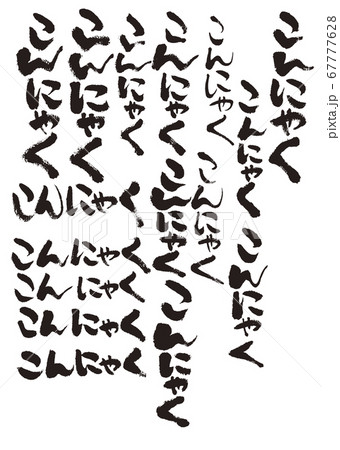 こんにゃく
こんにゃく
こんにゃく
こんにゃく
こんにゃく
こんにゃく
こんにゃく
こんにゃく
こんにゃく
こんにゃく
こんにゃく
こんにゃく
こんにゃく
こんにゃく
こんにゃく
こんにゃく
PIXTA
pixta.jp - 67777628